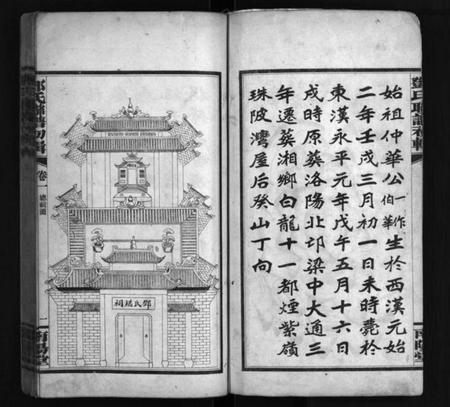 始祖仲華公一作伯華生於西漢元始
二年壬戌三月初一日未時薨於
東漢永平元年戊午五月十六日
戌時原葬洛陽北邙梁中大通三
年遷葬湘鄉白龍十一都煙紫嶺
珠陂灣屋后癸山丁向
鄧氏聯譜初輯
鄧氏總祠
鄧氏聯譜初輯
卷一
總祠圖
一
南陽堂